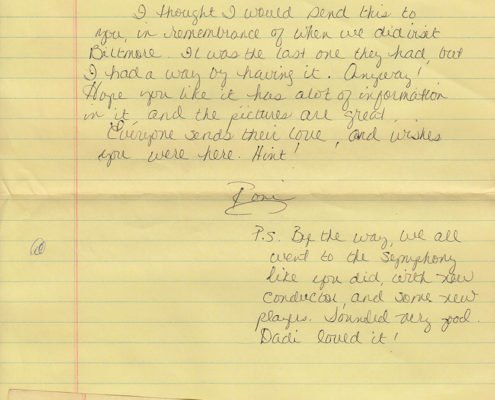 I thought I would send this to
you, in remembrance of when we did visit
Biltmore. It was the last one they had, but
I had a way by having it. Anyway!
Hope you like it has alot of information
in it, and the pictures are great.
Everyone sends their love, and wishes
you were here. Hint!
P.S. By the way, we all
went to the symphony
like you did, with new
conductor, and some new
players. Sounded very good.
Dadi loved it!